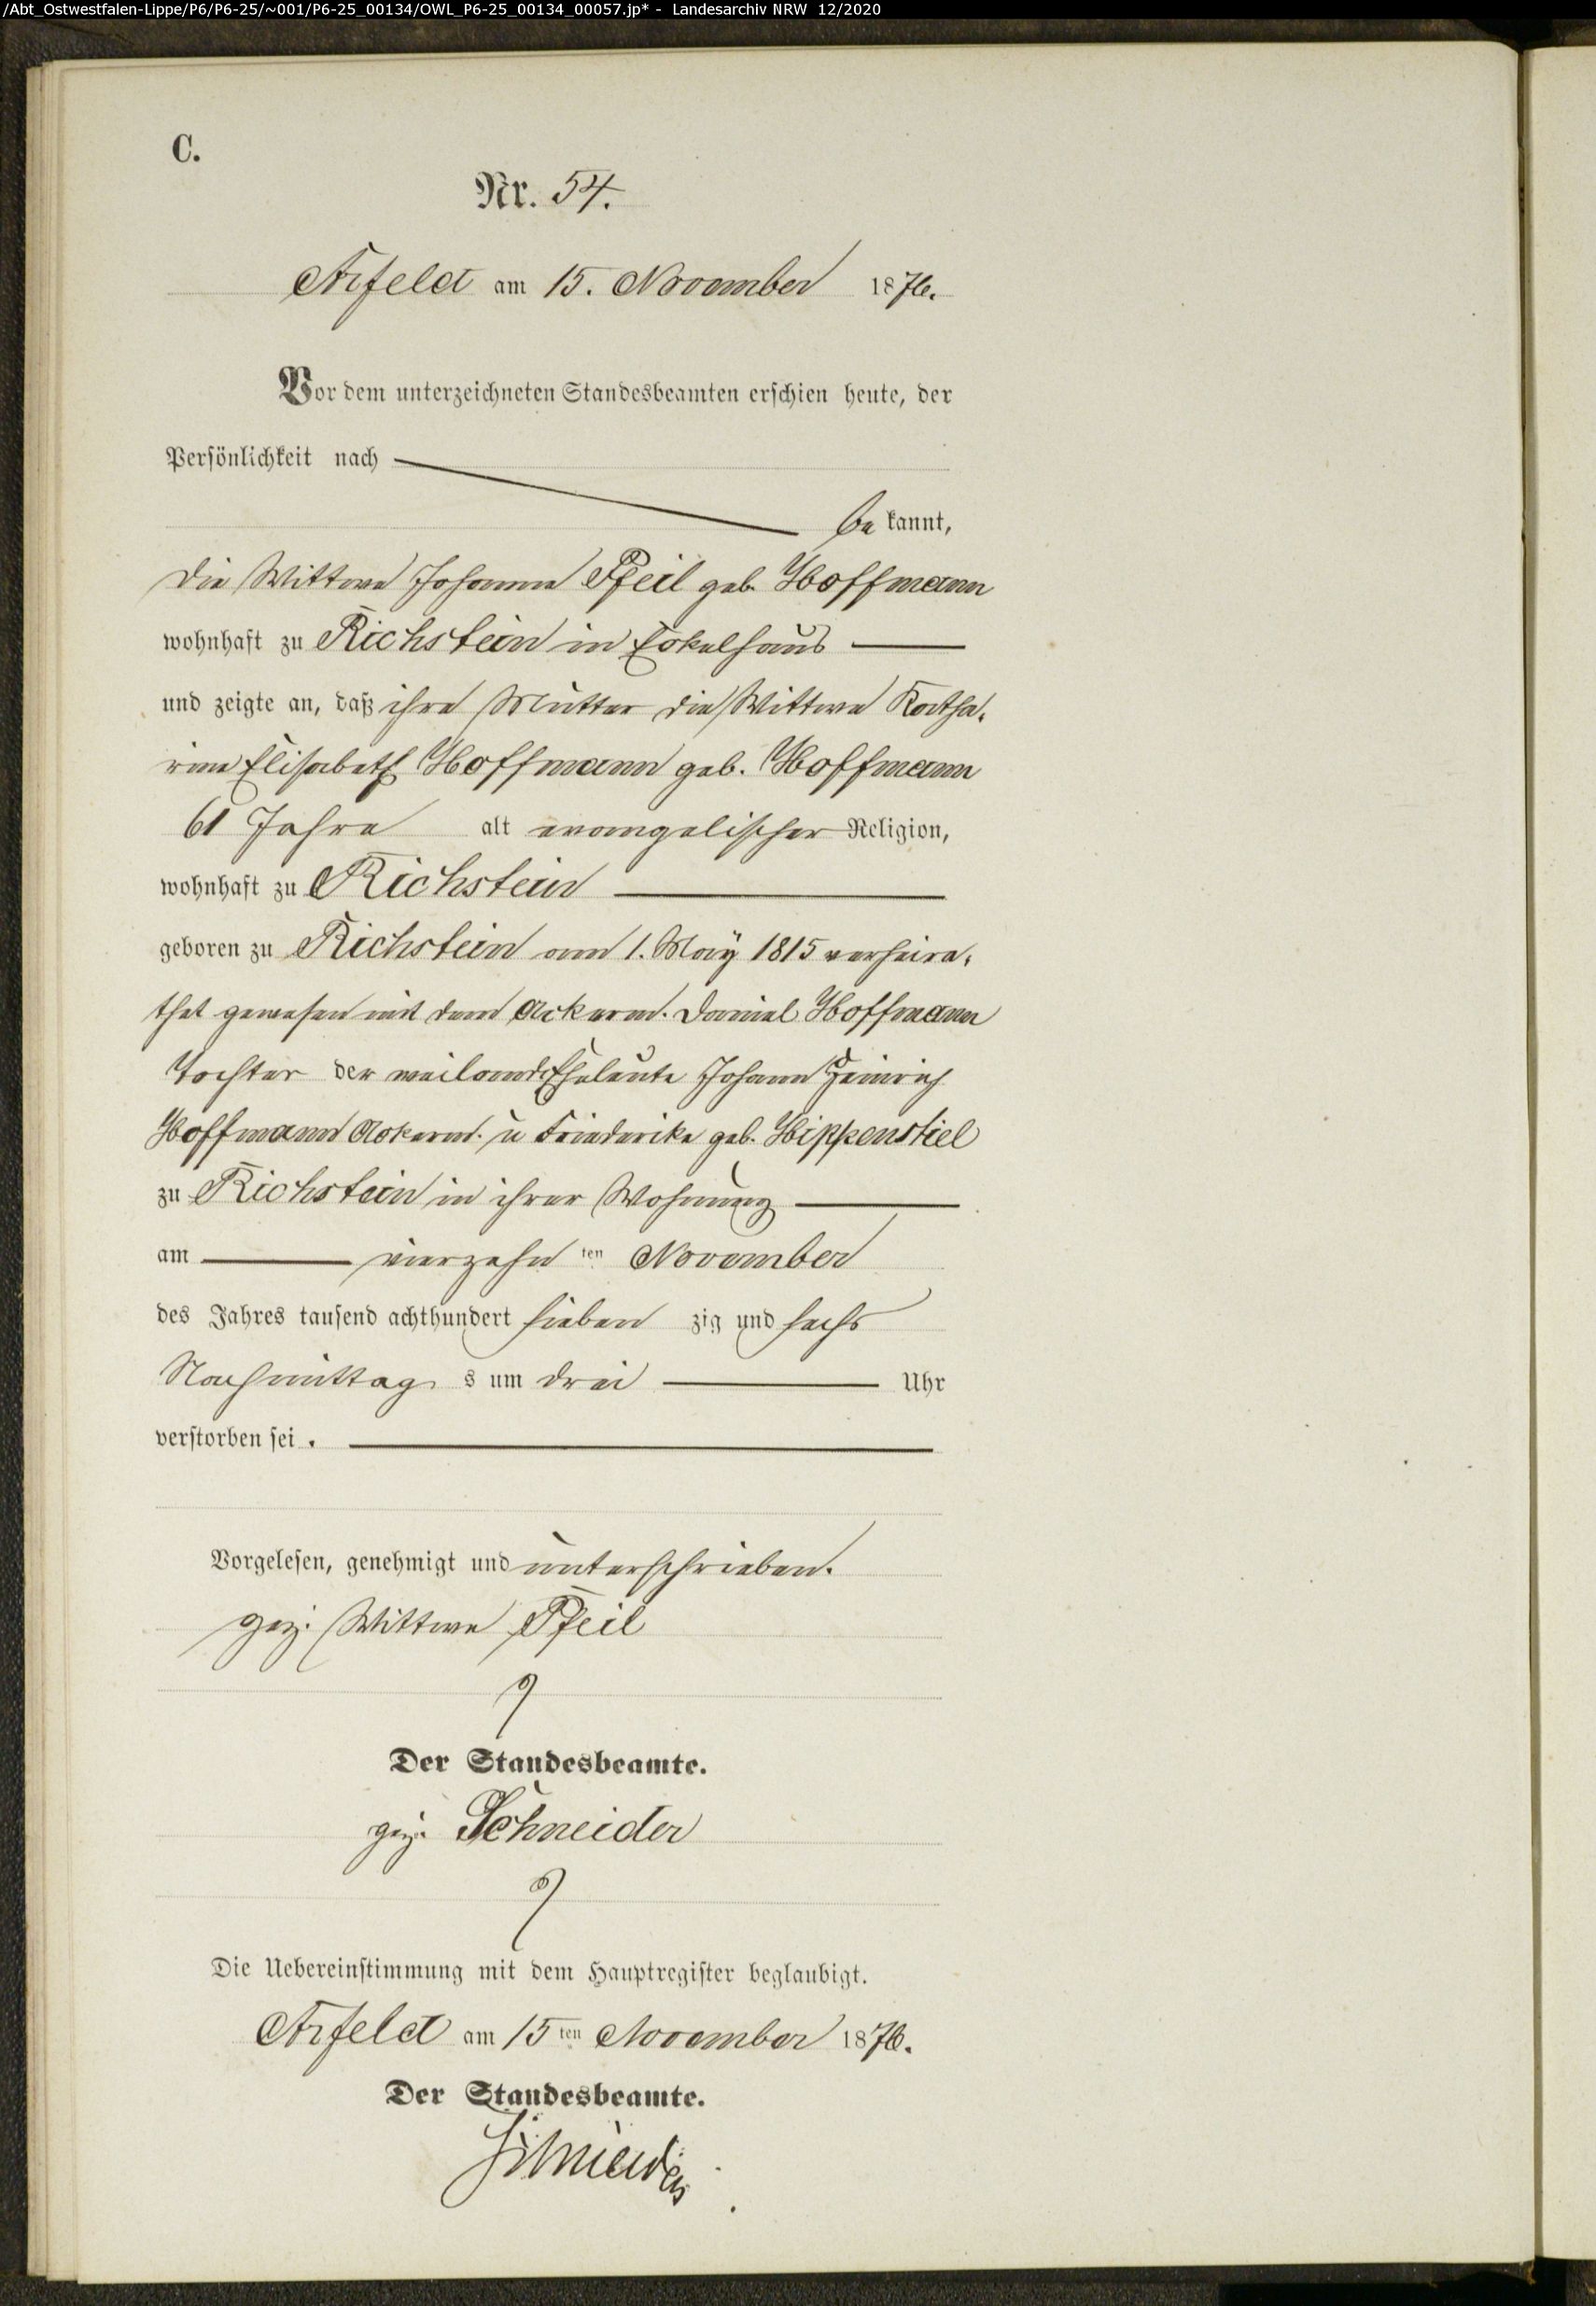 /Abt_Ostwestfalen-Lippe/P6/P6-25/~001/P6-25_00134/OWL_P6-25_00134_00057.jp* - Landesarchiv NRW 12/2020
C.
Nr. 54.
Arfeld am 15. November 1876.
Vor dem unterzeichneten Standesbeamten erschien heute, der
Persönlichkeit nach
be kannt,
die Wittwe Johanne Pfeil geb. Hoffmann
wohnhaft zu Richstein in Eckelhaus
und zeigte an, daß ihre Mutter die Wittwe Katha-
rine Elisabeth Hoffmann geb. Hoffmann
61 Jahre alt evangelischer Religion,
wohnhaft zu Richstein
geboren zu Richstein am 1. May 1815 verheira-
thet gewesen mit dem Ackerm. Daniel Hoffmann
Tochter der weiland Eheleute Johann Heinrich
Hoffmann Ackerm. u Friederike geb. Hippenstiel
zu Richstein in ihrer Wohnung
am vierzehn ten November
des Jahres tausend achthundert sieben zig und sechs
Nachmittag s um drei Uhr
verstorben sei .
Vorgelesen, genehmigt und unterschrieben.
gez. Wittwe Pfeil
Der Standesbeamte.
gez. Schneider
Die Uebereinstimmung mit dem Hauptregister beglaubigt.
Arfeld am 15 ten November 1876.
Der Standesbeamte.
Schneider